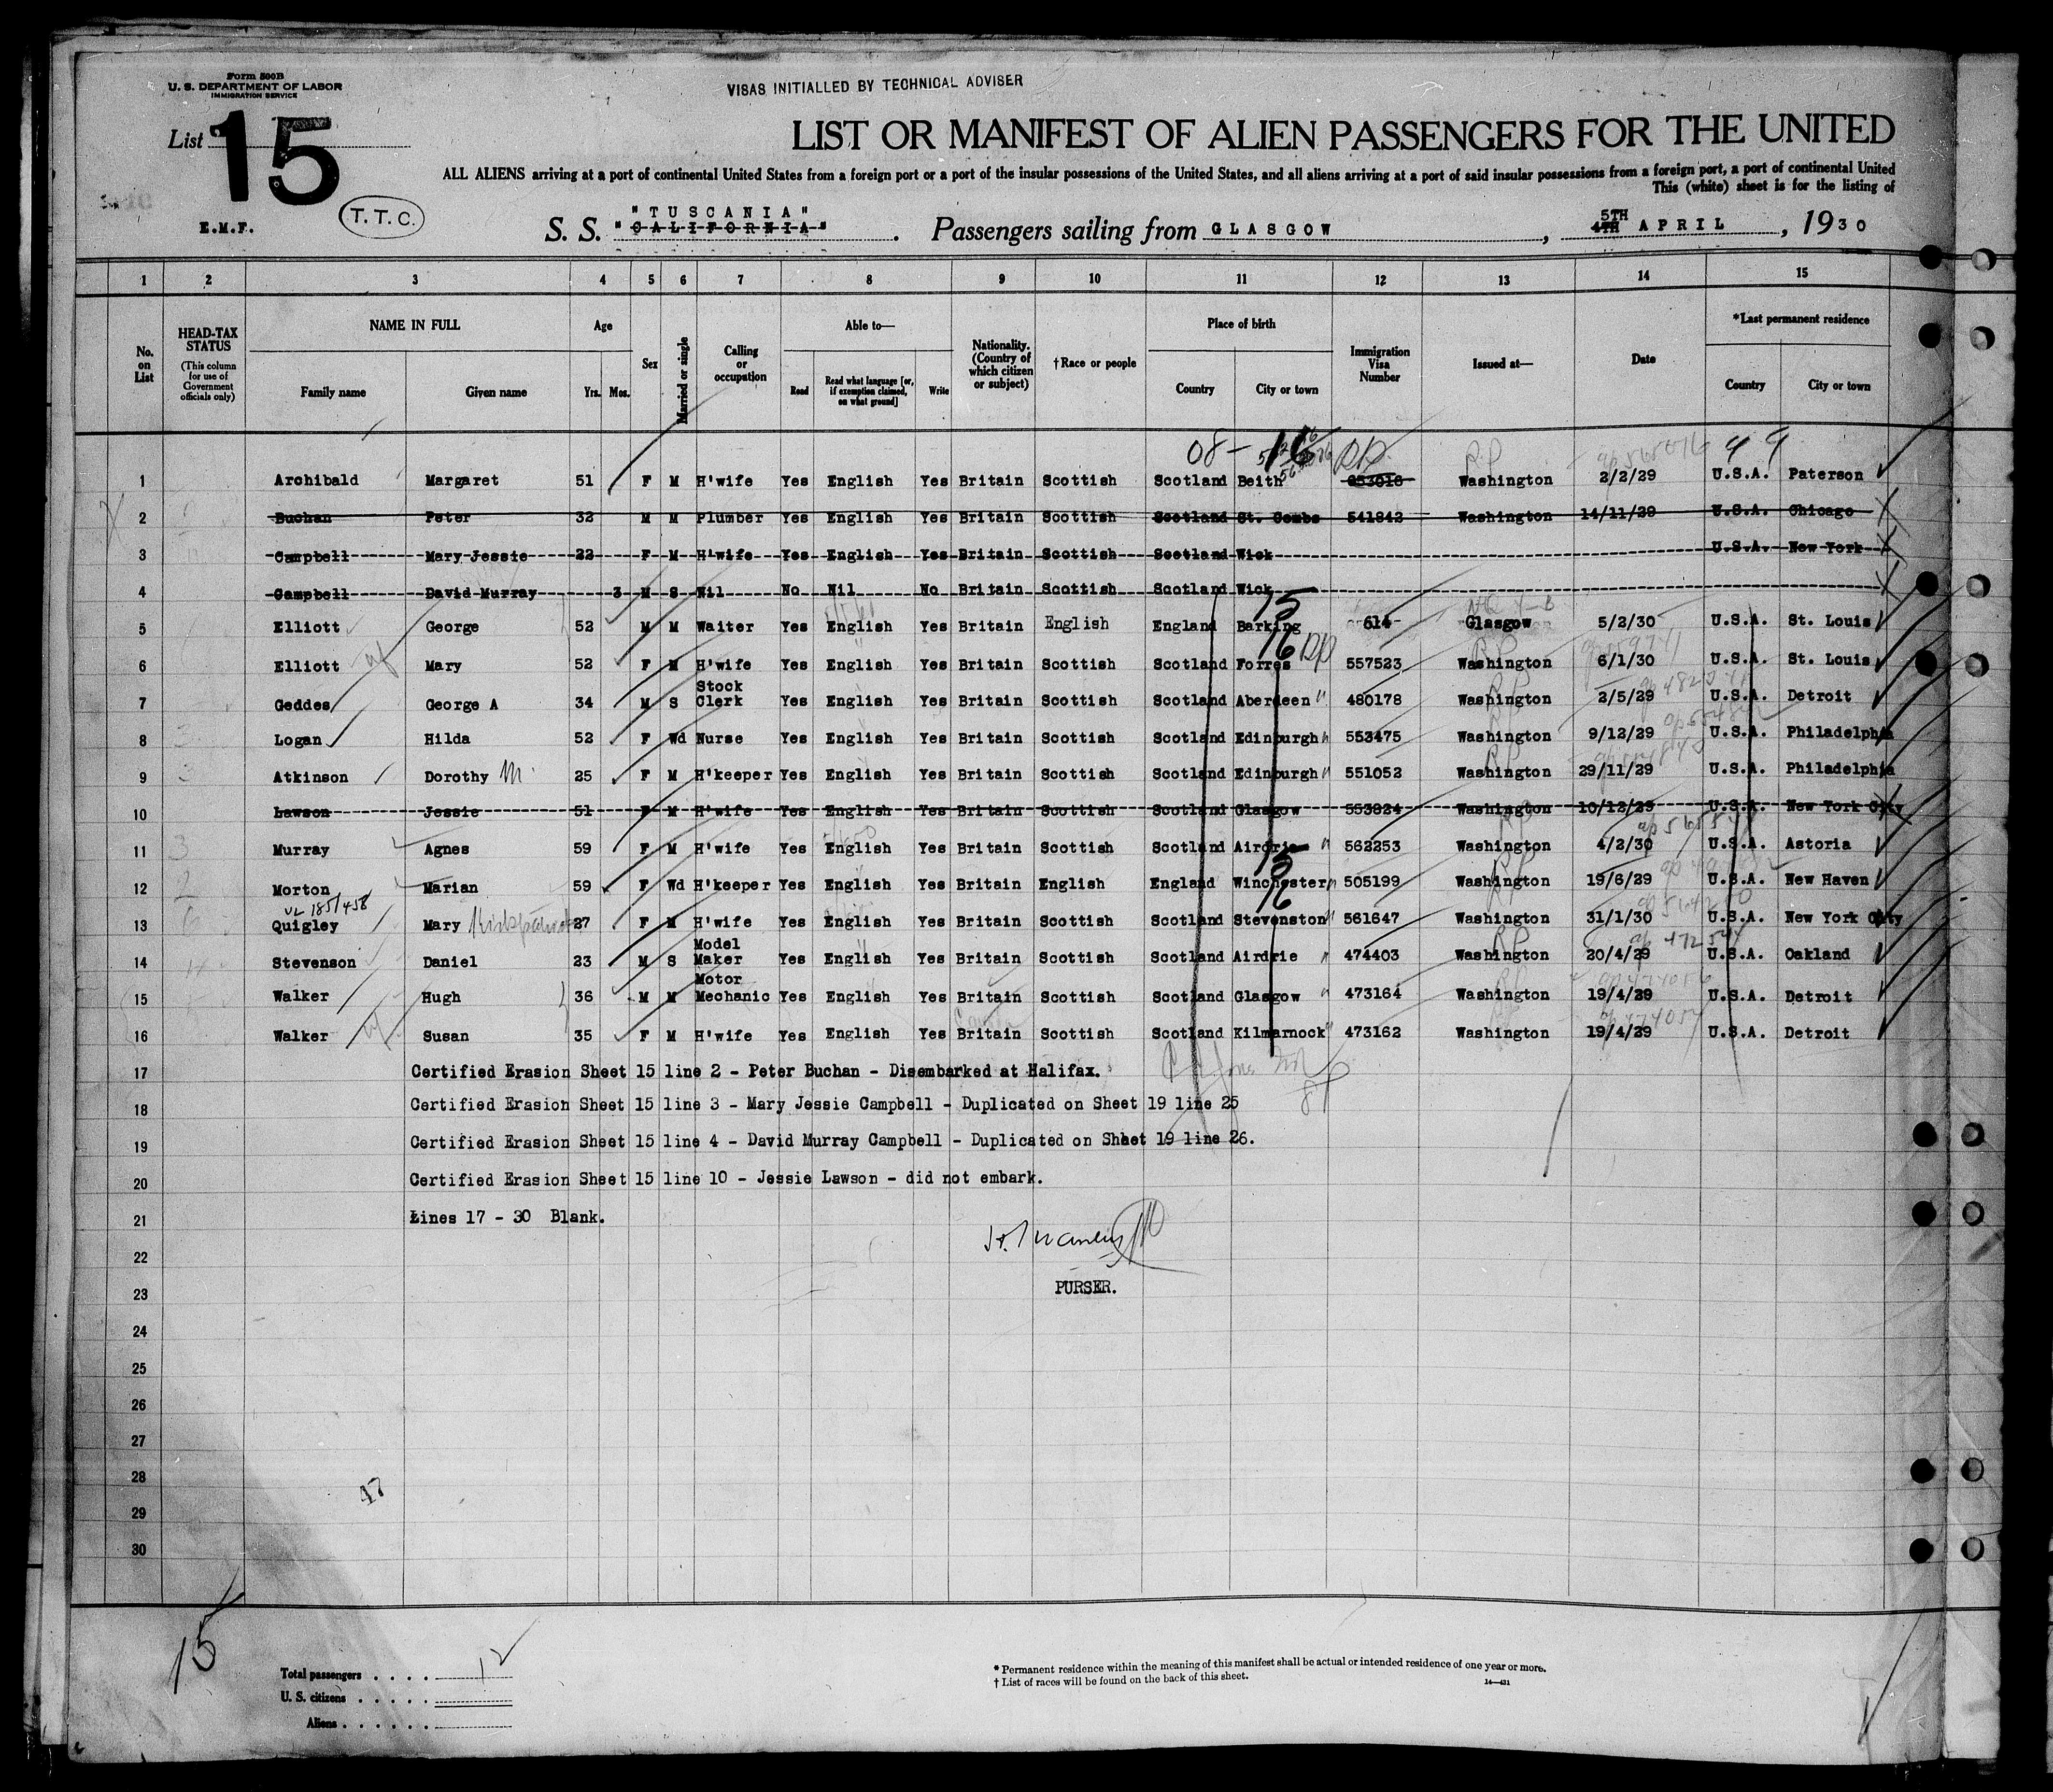 Form 500B
U. S. DEPARTMENT OF LABOR
IMMIGRATION SERVICE
VISAS INITIALLED BY TECHNICAL ADVISER
List 15
E.M.F.
T.T.C.
LIST OR MANIFEST OF ALIEN PASSENGERS FOR THE UNITED
ALL ALIENS arriving at a port of continental United States from a foreign port or a port of the insular possessions of the United States, and all aliens arriving at a port of said insular possessions from a foreign port, a port of continental United
This (white) sheet is for the listing of
"TUSCANIA"
S. S. "CALIFORNIA" . Passengers sailing from GLASGOW , 5TH 4TH APRIL , 1930
1 2 3 4 5 6 7 8 9 10 11 12 13 14 15
No. on List
HEAD-TAX STATUS (This column for use of Government officials only)
NAME IN FULL
Family name Given name
Age
Yrs. Mos.
Sex
Married or single
Calling or occupation
Able to—
Read Read what language [or, if exemption claimed, on what ground] Write
Nationality. (Country of which citizen or subject)
†Race or people
Place of birth
Country City or town
Immigration Visa Number
Issued at—
Date
*Last permanent residence
Country City or town
08- 16 RP RP 49
1 Archibald Margaret 51 F M H'wife Yes English Yes Britain Scottish Scotland Beith Washington 2/2/29 U.S.A. Paterson
2 Buchan Peter 32 M M Plumber Yes English Yes Britain Scottish Scotland St. Combs 541842 Washington 14/11/29 U.S.A. Chicago
3 Campbell Mary Jessie 22 F M H'wife Yes English Yes Britain Scottish Scotland Wick U.S.A. New York
4 Campbell David Murray 3 M S Nil No Nil No Britain Scottish Scotland Wick
5 Elliott George 52 M M Waiter Yes English Yes Britain English England Barking 614 Glasgow 5/2/30 U.S.A. St. Louis
6 Elliott Mary 52 F M H'wife Yes English Yes Britain Scottish Scotland Forres 557523 Washington 6/1/30 U.S.A. St. Louis
7 Geddes George A 34 M S Stock Clerk Yes English Yes Britain Scottish Scotland Aberdeen 480178 Washington 2/5/29 U.S.A. Detroit
8 Logan Hilda 52 F Wd Nurse Yes English Yes Britain Scottish Scotland Edinburgh 553475 Washington 9/12/29 U.S.A. Philadelphia
9 Atkinson Dorothy M. 25 F M H'keeper Yes English Yes Britain Scottish Scotland Edinburgh 551052 Washington 29/11/29 U.S.A. Philadelphia
10 Lawson Jessie 51 F M H'wife Yes English Yes Britain Scottish Scotland Glasgow 553824 Washington 10/12/29 U.S.A. New York City
11 Murray Agnes 59 F M H'wife Yes English Yes Britain Scottish Scotland Airdrie 562253 Washington 4/2/30 U.S.A. Astoria
12 Morton Marian 59 F Wd H'keeper Yes English Yes Britain English England Winchester 505199 Washington 19/6/29 U.S.A. New Haven
13 Quigley Mary 27 F M H'wife Yes English Yes Britain Scottish Scotland Stevenston 561647 Washington 31/1/30 U.S.A. New York City
14 Stevenson Daniel 23 M S Model Maker Yes English Yes Britain Scottish Scotland Airdrie 474403 Washington 20/4/29 U.S.A. Oakland
15 Walker Hugh 36 M M Motor Mechanic Yes English Yes Britain Scottish Scotland Glasgow 473164 Washington 19/4/29 U.S.A. Detroit
16 Walker Susan 35 F M H'wife Yes English Yes Britain Scottish Scotland Kilmarnock 473162 Washington 19/4/29 U.S.A. Detroit
17 Certified Erasion Sheet 15 line 2 - Peter Buchan - Disembarked at Halifax.
18 Certified Erasion Sheet 15 line 3 - Mary Jessie Campbell - Duplicated on Sheet 19 line 25
19 Certified Erasion Sheet 15 line 4 - David Murray Campbell - Duplicated on Sheet 19 line 26.
20 Certified Erasion Sheet 15 line 10 - Jessie Lawson - did not embark.
21 Lines 17 - 30 Blank.
22
23 PURSER.
24
25
26
27
28
29
30
47
15
Total passengers . . . . 12
U. S. citizens . . . . .
Aliens . . . . . .
* Permanent residence within the meaning of this manifest shall be actual or intended residence of one year or more.
† List of races will be found on the back of this sheet.
14—431